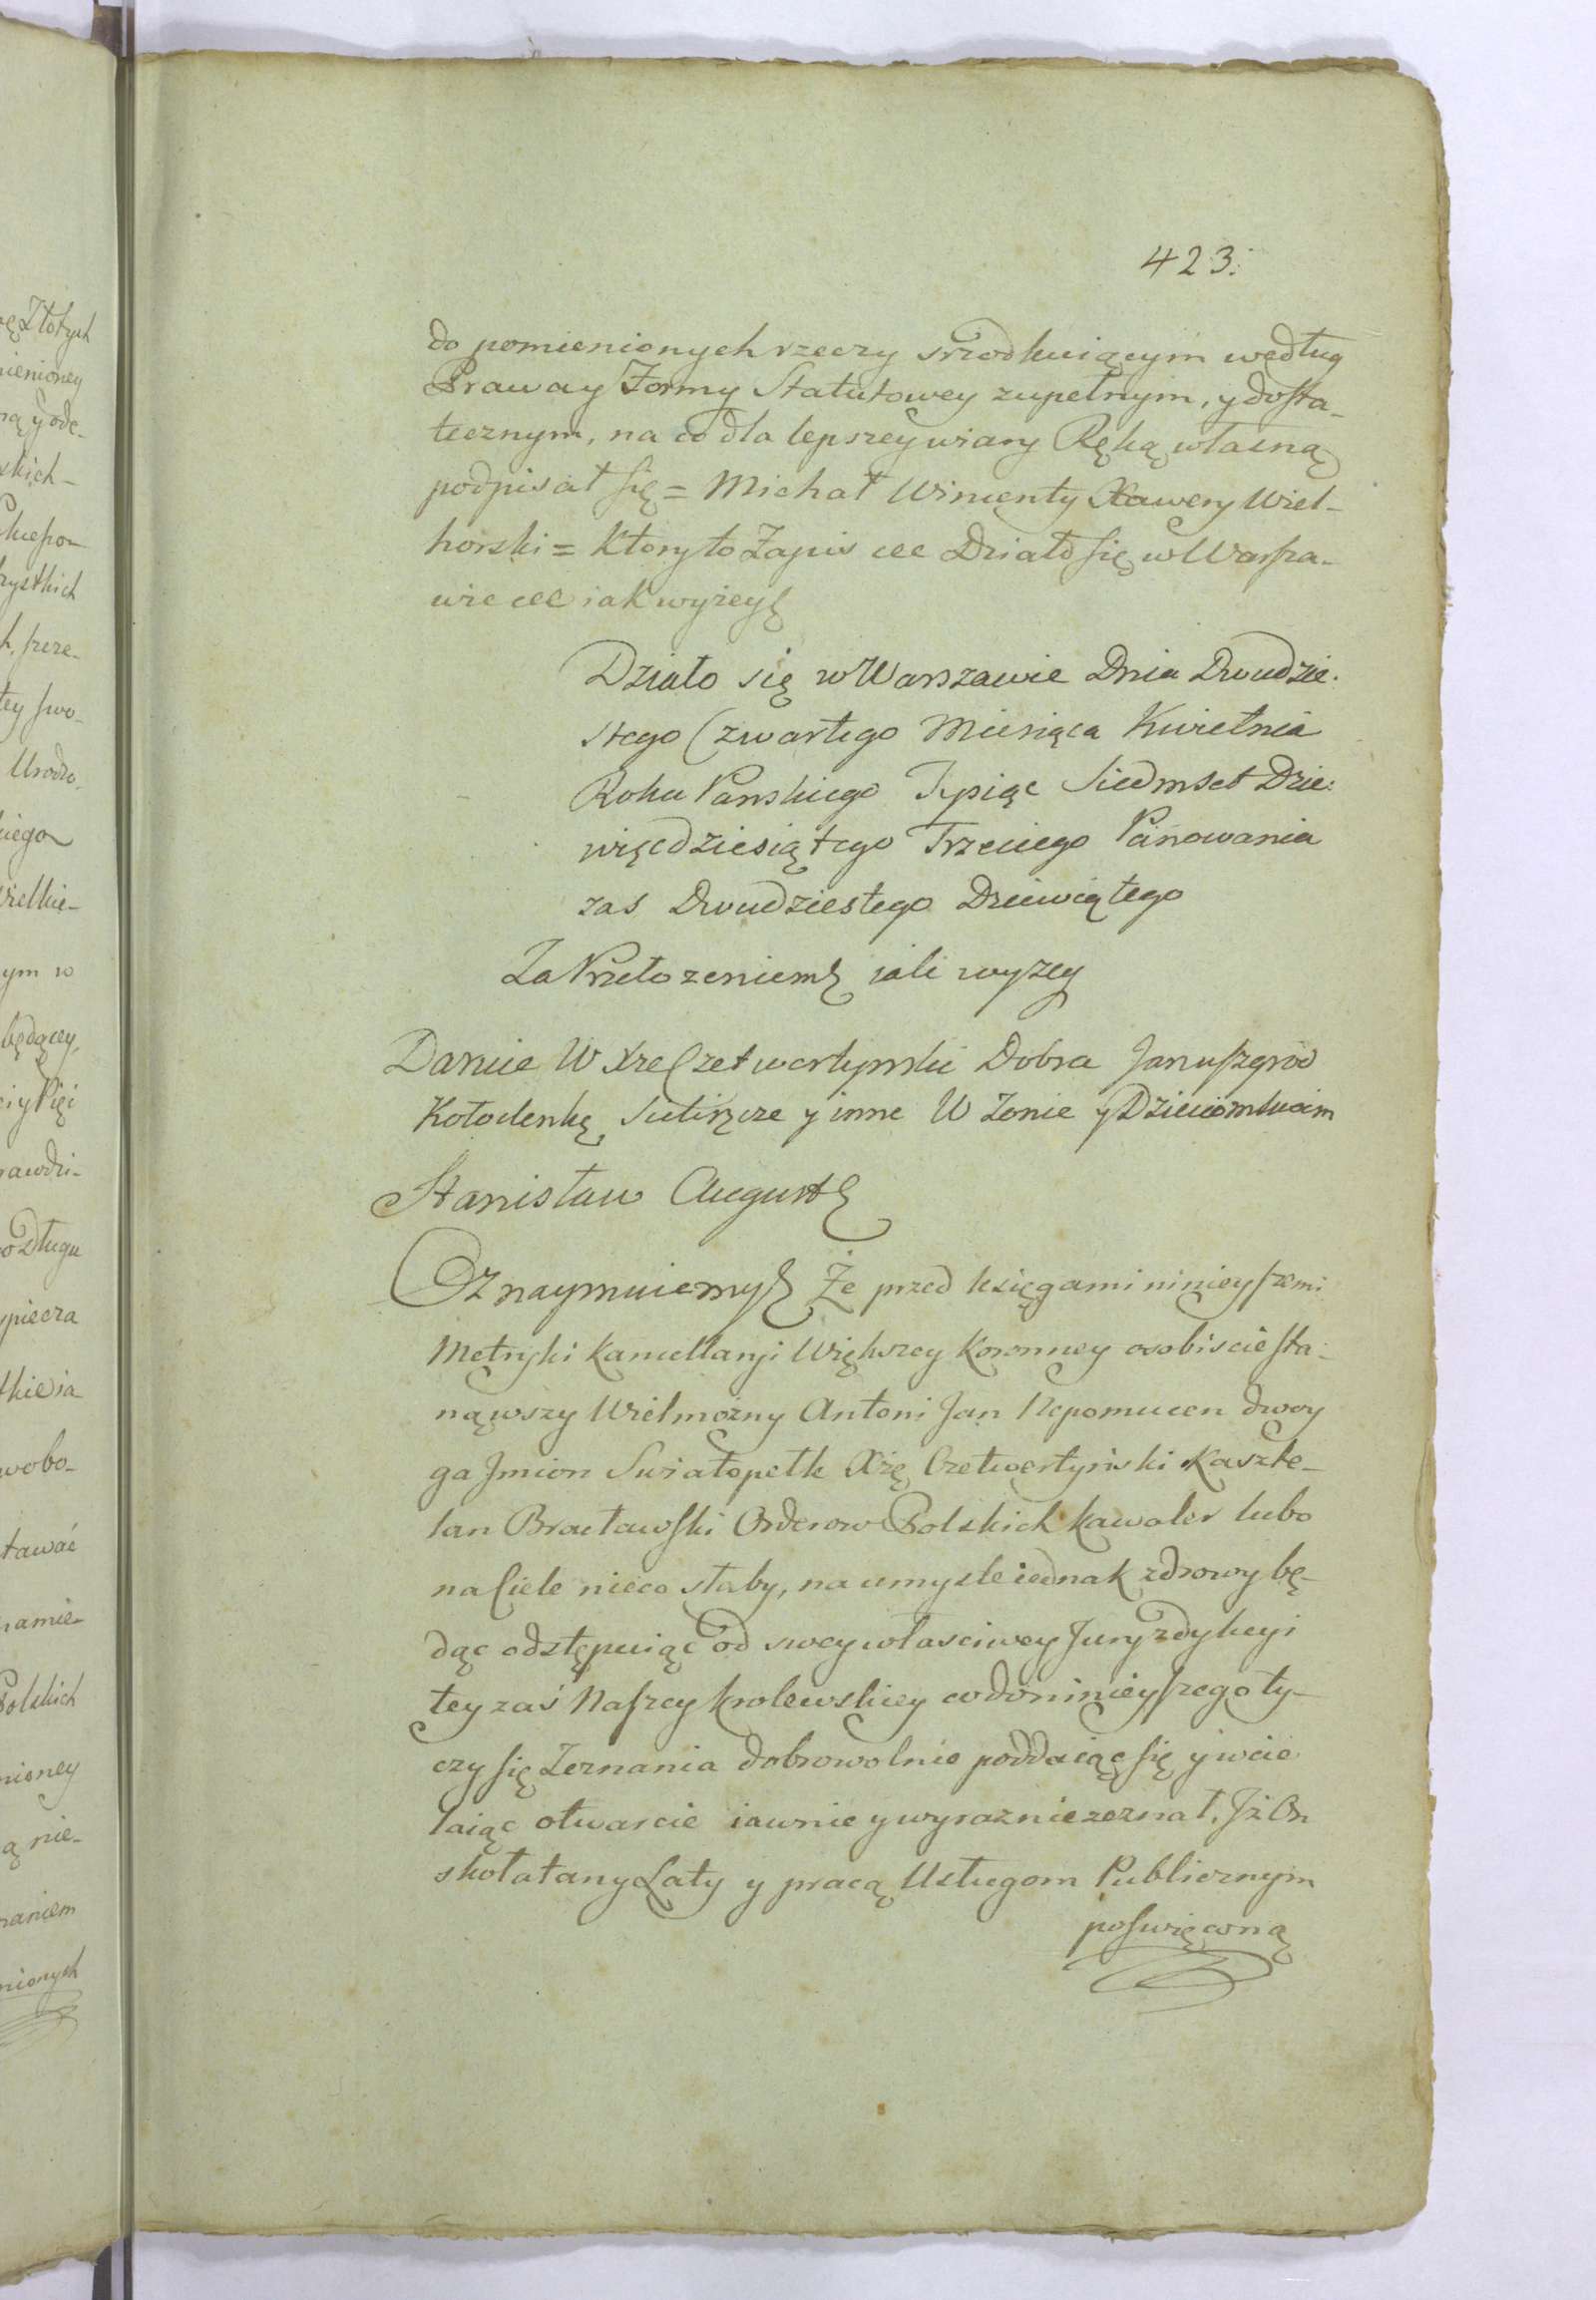 423.
do pomienionych rzeczy srzodkuiącym według
Prawa y Formy Statutowey zupełnym, y dosta-
tecznym, na co dla lepszey wiary Ręką własną
podpisał się = Michał Wincenty Xawery Wiel-
horski = Ktory to Zapis ett Działo się w Warsza-
wie ett iak wyżey
Działo się w Warszawie Dnia Dwudzie:
stego Czwartego Miesiąca Kwietnia
Roku Panskiego Tysiąc Siedmset Dzie:
więdziesiątego Trzeciego Panowania
zas Dwudziestego Dziewiątego
Za Przełozeniem iak wyzey
Danie W Xże Czetwertynski Dobra Januszgrod
Kołodenkę, y inne W Zonie y Dzieciom swoim
Stanisław August
Oznaymuiemy Że przed księgami ninieyszemi
Metryki Kancellaryi Większey Koronney osobiscie sta-
nąwszy Wielmożny Antoni Jan Nepomucen dwoy
ga Jmion Swiatopełk Xżę Czetwertyński Kaszte-
lan Bracławski Orderow Polskich kawaler lubo
na Ciele nieco słaby, na umysle iednak zdrowy bę-
dąc odstępuiąc od swey własciwey Juryzdykcyi
tey zaś Naszey krolewskiey co do ninieyszego ty-
czy się Zeznania dobrowolnie poddaiąc się y wcie
laiąc otwarcie iawnie y wyraznie zeznał. Jż On
skołatany Laty y pracą Usługom Publicznym
poswięconą
ę Złotych
mienioney
ą y ode-
skich-
rzystkich
ey swo-
Urodzo.
iego
ielkie-
ym w
będącey,
y Pięć
rawdzi-
o Długu
piecza
wobo-
tawać
amie-
Polskich
nioney
ą nie-
naniem
nionych